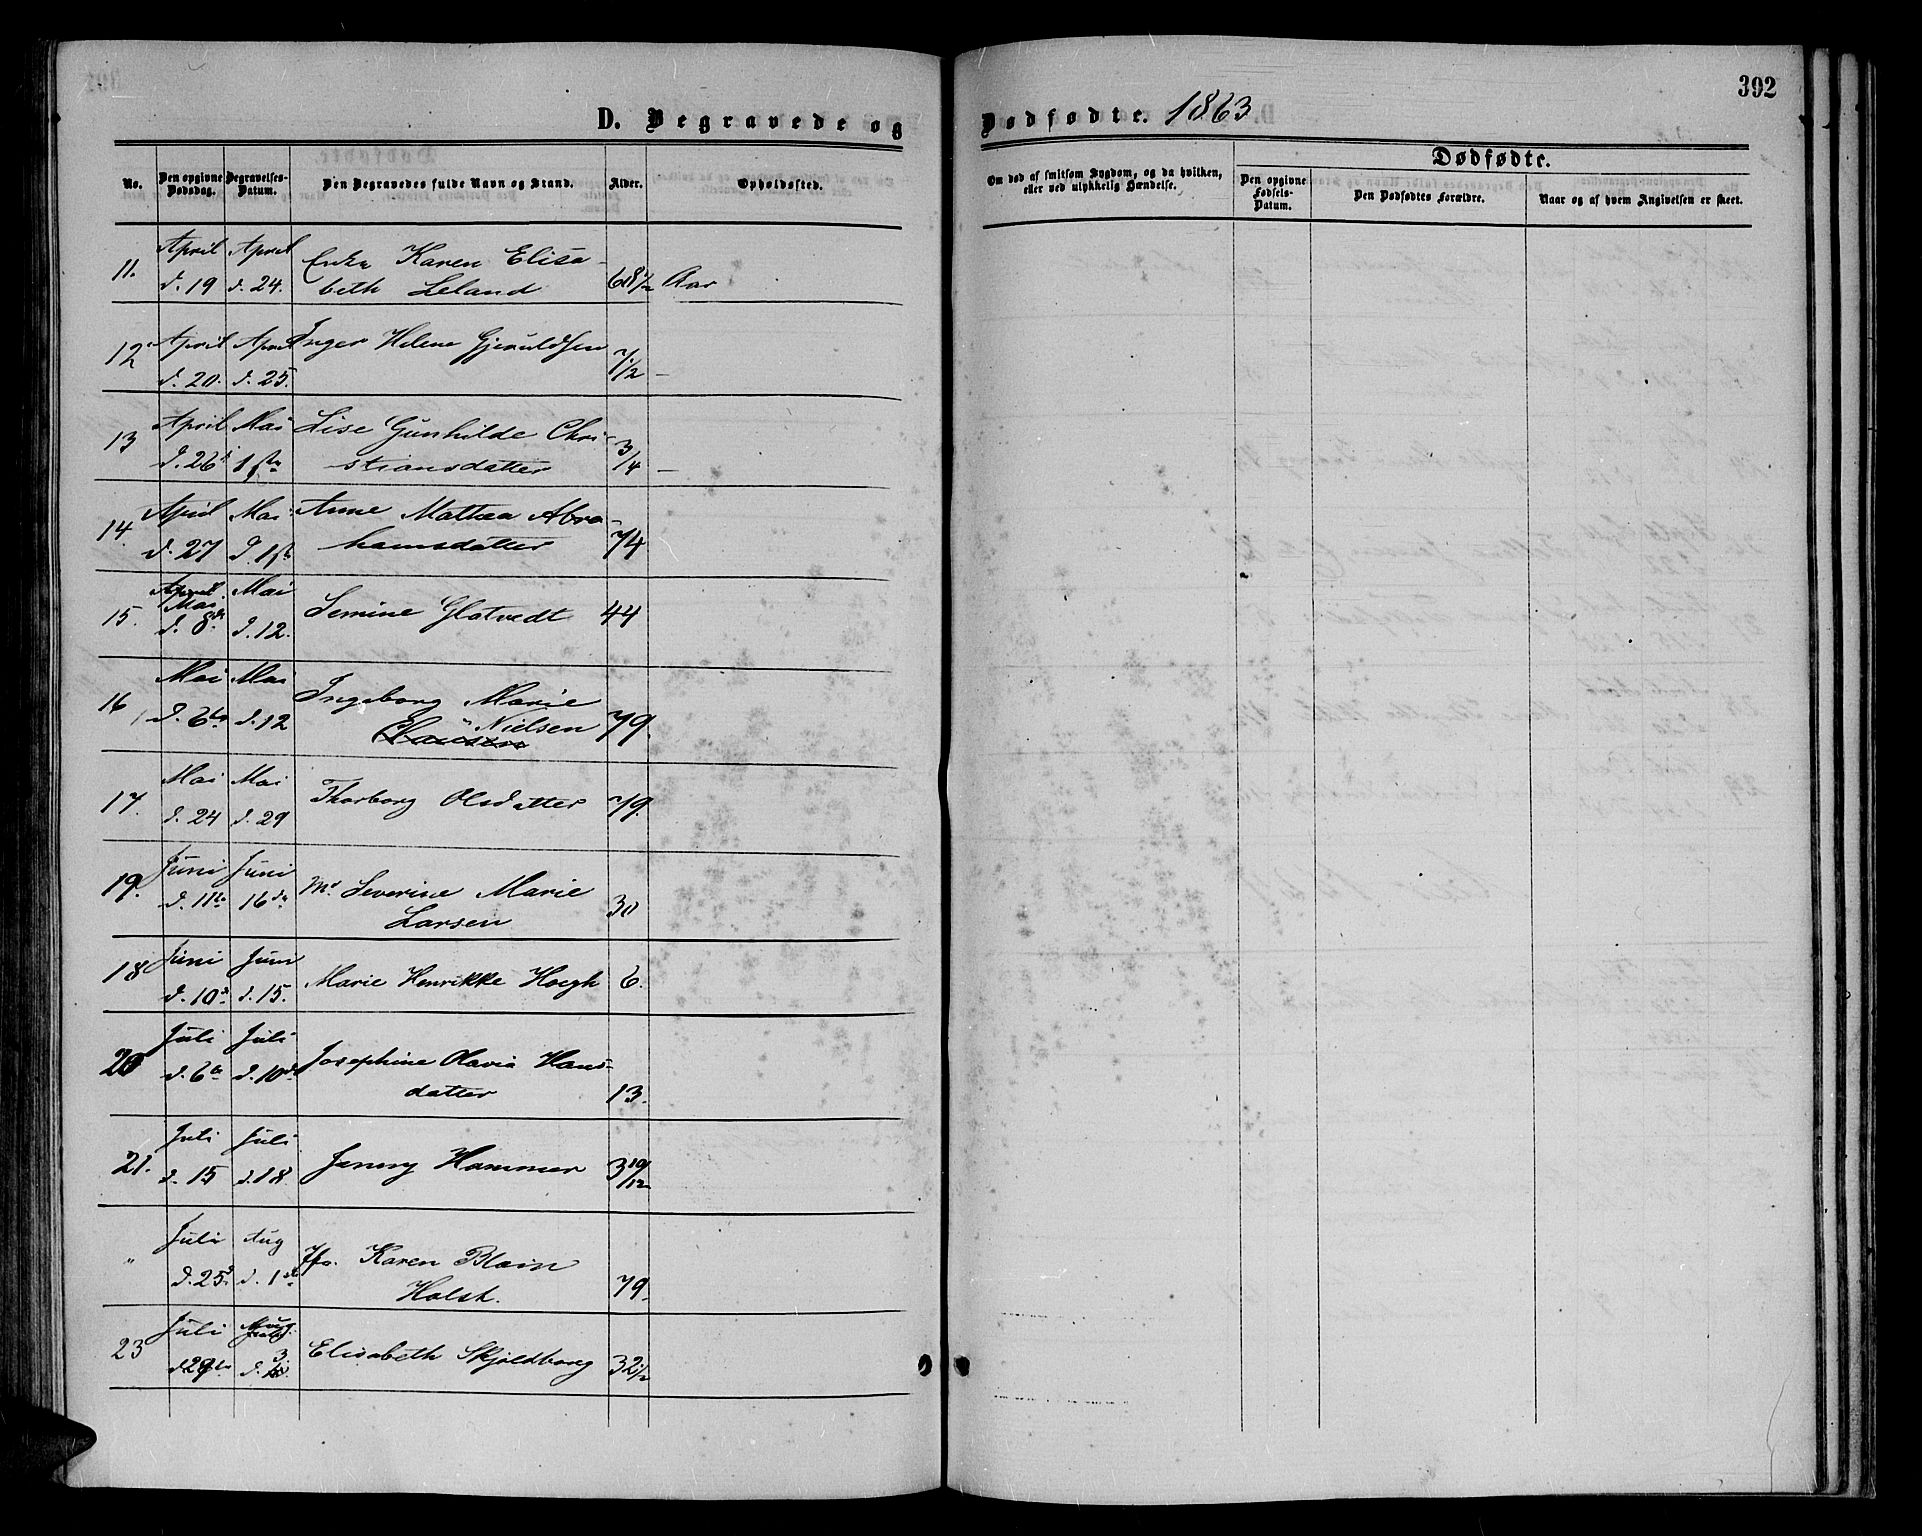 392
D. Begravede og Dødfødte. 1863
No.
Den opgivne Dødsdag.
Begravelses-Datum.
Den Begravedes fulde Navn og Stand.
Alder.
Opholdssted.
Om død af smitsom Sygdom, og da hvilken, eller ved ulykkelig Hændelse.
Dødfødte.
Den opgivne Fødsels-Datum.
Den Dødfødtes Forældre.
Naar og af hvem Angivelsen er skeet.
11. April April Enke Karen Elisa-
d. 19 d. 24. beth Leland 68 1/2 Aar
12 April April Inger Helene Gjeruldsen
d. 20. d. 25. 7/12 –
13 April Mai Lise Gunhilde Chri-
d. 26 1ste stiansdatter 3/4 –
14. April Mai Anne Mathea Abra-
d. 27 d. 1ste hamsdatter 74
15. April Mai Mai Semine Glatvedt 44
d. 8de d. 12.
16 Mai Mai Ingeborg Marie
d. 6te d. 12 Clausen Nielsen 79.
17. Mai Mai Thorborg Olsdatter 79.
d. 24 d. 29
19. Juni Juni Md Severine Marie
d. 11te 16de Larsen 30
18 Juni Juni Marie Henrikke Høegh 6.
d. 10d d. 15.
20 Juli Juli Josephine Olavia Hans-
d. 6te d. 10de datter 13.
21. Juli Juli Jenny Hammer 3 10/12
d. 15 d. 18
" Juli Aug Jfr. Karen Blain
d. 25d d. 1ste Holst. 79.
23 Juli Aug Elisabeth Skjoldborg 32 1/2
d. 29te d. 3